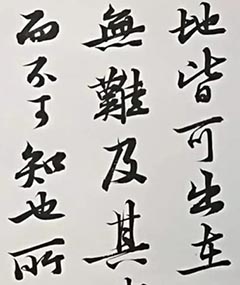 地皆可出在
無難及其
而不可知也所